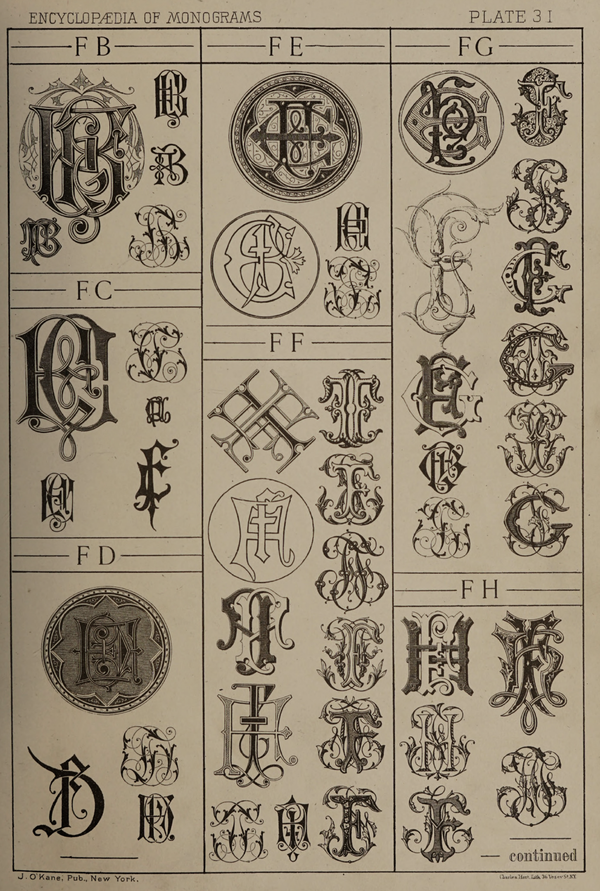 ENCYCLOPÆDIA OF MONOGRAMS
PLATE 31
FB
FE
FG
FC
FF
FD
FH
continued
J. O'Kane, Pub., New York.